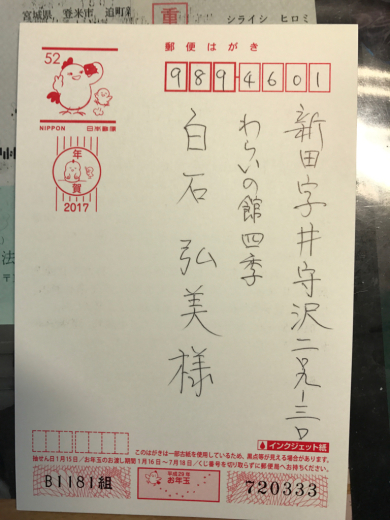 宮城県, 登米市 迫町新
重
シライシ ヒロミ
郵便はがき
52
989-4601
NIPPON 日本郵便
年賀
2017
新田字井守沢二
わらいの館四季
白石弘美様
法
インクジェット紙
このはがきは一部古紙を使用しているため、黒点等が見える場合があります。
抽せん日1月15日/お年玉のお渡し期間1月16日~7月18日/くじ番号を切り取らずに郵便局へお持ちください。
B1181組
平成29年
お年玉
720333